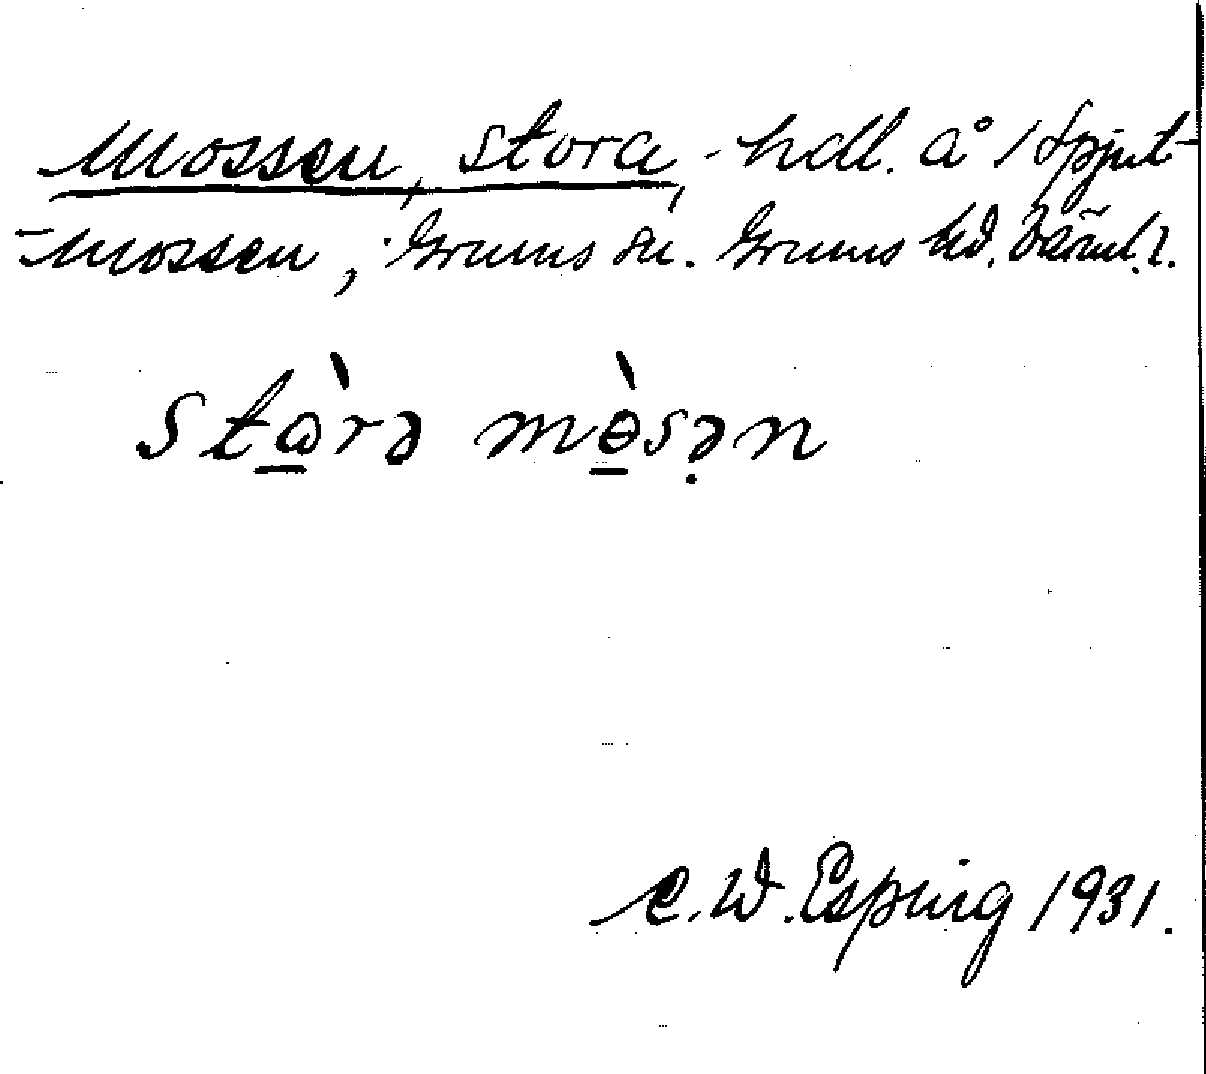 Mossen, stora, hdl. å 1 Spjut-
-mossen, Grums sn. Grums hd. Värml.
stὼrə mɵ̀sən
C. W. Esping 1931.